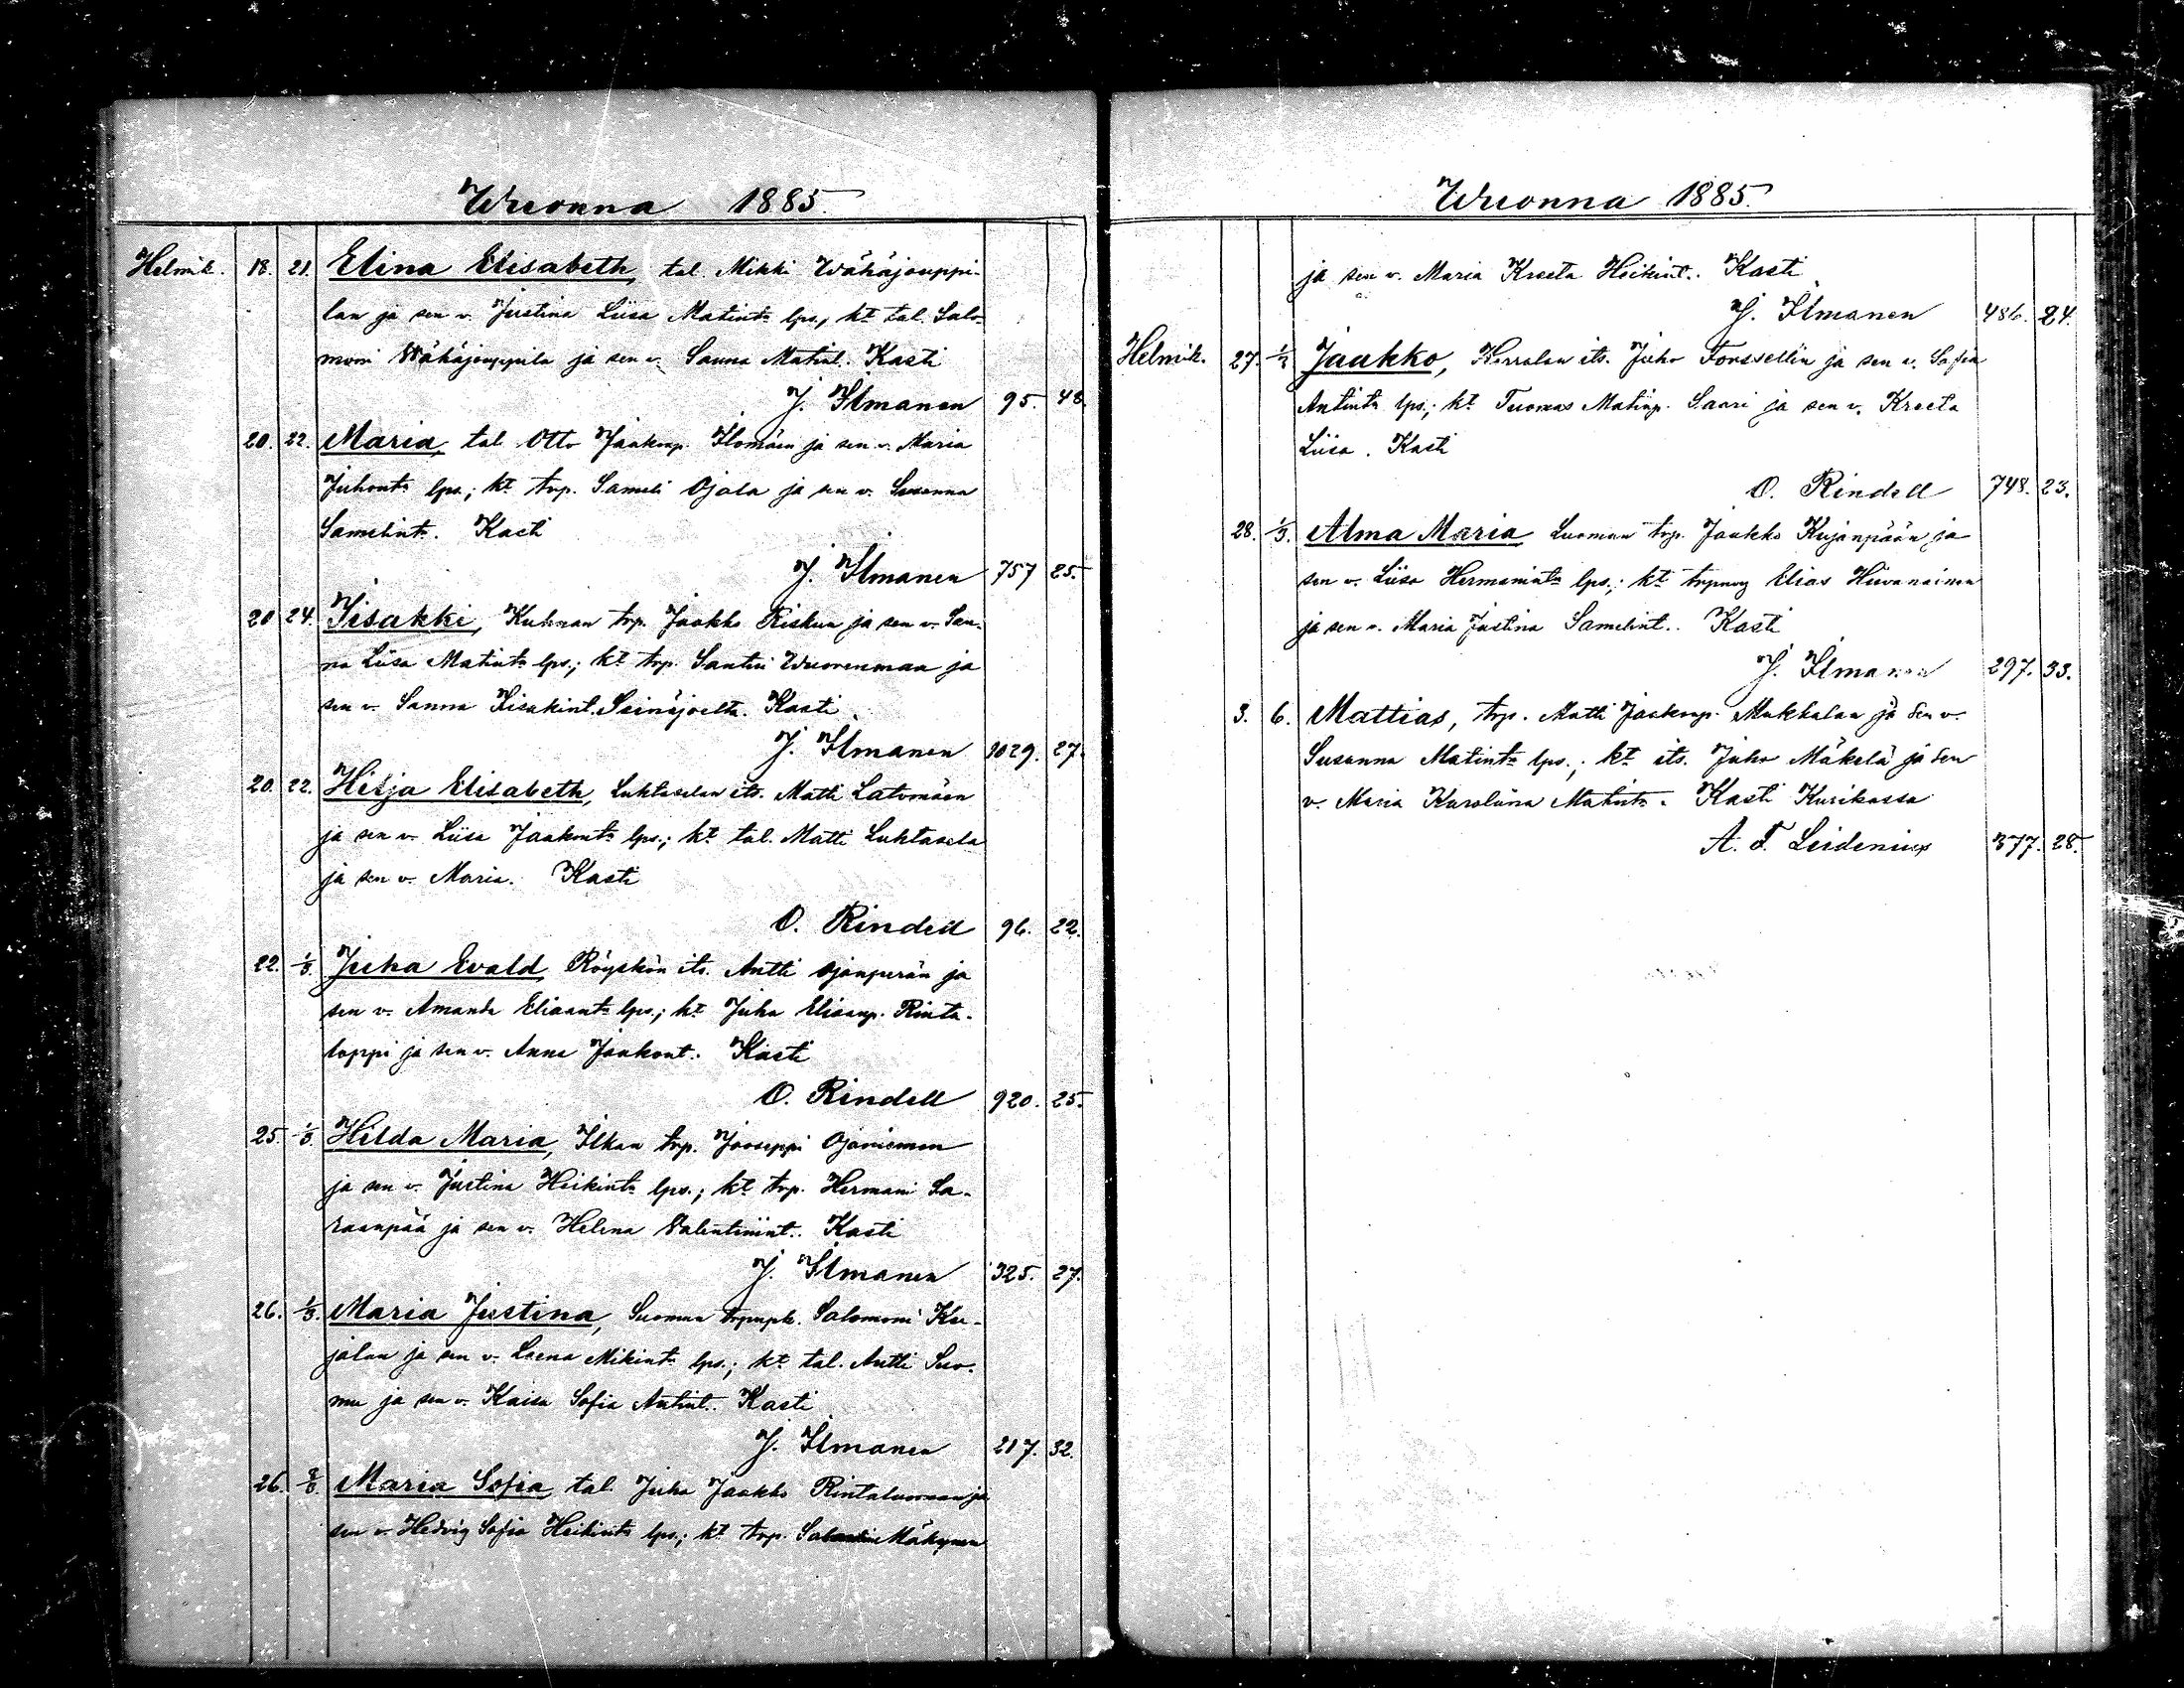 Wuonna 1885.
Helmik. 18. 21. Elina Elisabeth, tal. Mikki Wähäjouppi-
lan ja sen v. Justina Liisa Matint:n lps., kt tal. Salo-
moni Wähäjouppila ja sen v. Sanna Matint. Kasti
J. Ilmanen 95. 48.
20. 22. Maria, tal Otto Jaakonp. Ilomäen ja sen v. Maria
Juhont:n lps.; kt trp. Sameli Ojala ja sen v. Susanna
Samelint. Kasti
J. Ilmanen 757 25.
20 24. Iisakki, Kuhnan trp. Jaakko Kiskun ja sen v. San-
na Liisa Matint:n lps.; kt trp. Santeri Wuorenmaa ja
sen v. Sanna Iisakint. Seinäjoelta. Kasti
J. Ilmanen 1029. 27.
20. 22. Hilja Elisabeth, Luhtaselan its. Matti Latomäen
ja sen v. Liisa Jaakont:n lps.; kt tal. Matti Luhtasela
ja sen v. Maria. Kasti
O. Rindell 96. 22.
22. 1/3. Juha Evald, Röyskön its. Antti Ojanperän ja
sen v. Amanda Eliaant:n lps.; kt Juha Eliaanp. Rinta-
loppi ja sen v. Anna Jaakont. Kasti
O. Rindell 920. 25.
25. 1/3. Hilda Maria, Ilkan trp. Jooseppi Ojaniemen
ja sen v. Justina Heikint:n lps.; kt trp. Hermani La-
raanpää ja sen v. Helena Valentinint. Kasti
J. Ilmanen 325. 27.
26. 1/3. Maria Justina, Suomun Salomoni Ku-
jalan ja sen v. Leena Mikint:n lps.; kt tal. Antti Suo-
mu ja sen v. Kaisa Sofia Antint. Kasti
J. Ilmanen 217. 32.
26. Maria Sofia, tal. Juha Jaakko Rintaluoman ja
sen v. Hedvig Sofia Heikint:n lps.; kt trp. Mäkynen
Wuonna 1885.
ja sen v. Maria Kreeta Heikint. Kasti
J. Ilmanen 486. 24.
Helmik. 27. Jaakko, Kerralan its. Juho Forssellin ja sen v. Sofia
Antint:n lps.; kt Tuomas Matinp. Saari ja sen v. Kreeta
Liisa. Kasti
O. Rindell 748. 23.
28. 1/3. Alma Maria Luoman trp. Jaakko Kujanpään ja
sen v. Liisa Hermanint:n lps.; kt Elias Hiivanainen
ja sen v. Maria Justina Samelint. Kasti
J. Ilmanen 297. 33.
3. 6. Mattias, trp. Matti Jaakonp. Mukkalan ja sen v.
Susanna Matint:n lps.; kt its. Juho Mäkelä ja sen
v. Maria Karoliina Matint:n. Kasti Kurikassa
A. F. Leidenius 377. 28.